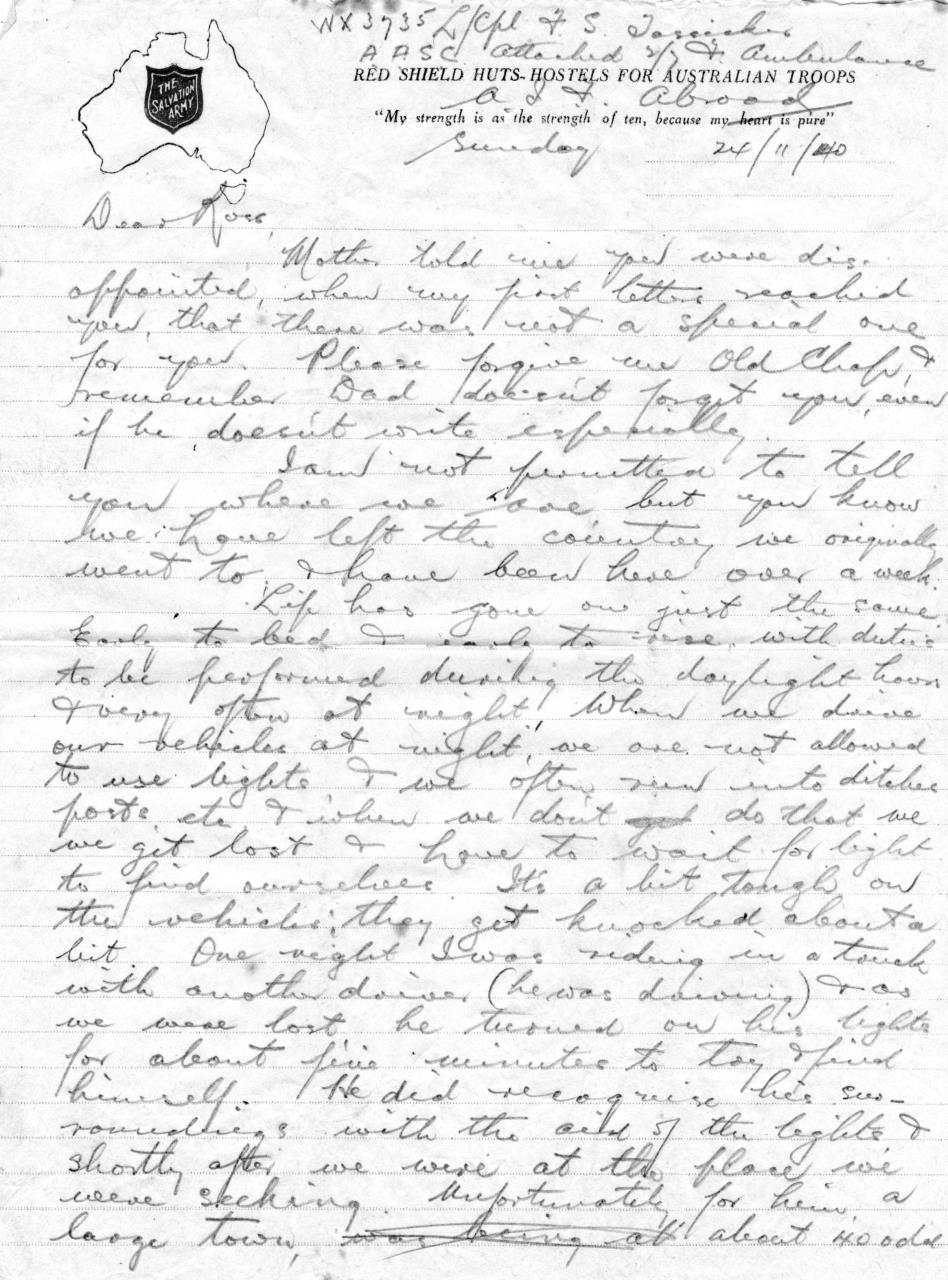 WX3735 L/Cpl F. S.
AASC Attached 2/7 F. Ambulance
RED SHIELD HUTS-HOSTELS FOR AUSTRALIAN TROOPS
A I F. Abroad
"My strength is as the strength of ten, because my heart is pure"
THE
SALVATION
ARMY
Sunday 24/11/40
Dear Ross,
Mother told me you were dis-
appointed, when my first letters reached
you, that there was not a special one
for you. Please forgive me Old Chap, &
remember Dad doesn't forget you, even
if he doesn't write especially.
I am not permitted to tell
you where we are but you know
we have left the country we originally
went to, & have been here over a week.
Life has gone on just the same.
Early to bed & early to rise, with duties
to be performed during the daylight hours
& very often at night. When we drive
our vehicles at night, we are not allowed
to use lights & we often run into ditches
posts etc & when we don't do that we
we get lost & have to wait for light
to find ourselves. It's a bit tough on
the vehicles; they get knocked about a
bit. One night I was riding in a truck
with another driver (he was driving) & as
we were lost he turned on his lights
for about five minutes to try & find
himself. He did recognise his sur-
roundings with the aid of the lights &
shortly after we were at the place we
were seeking. Unfortunately for him, a
large town, was being at about 40 odd